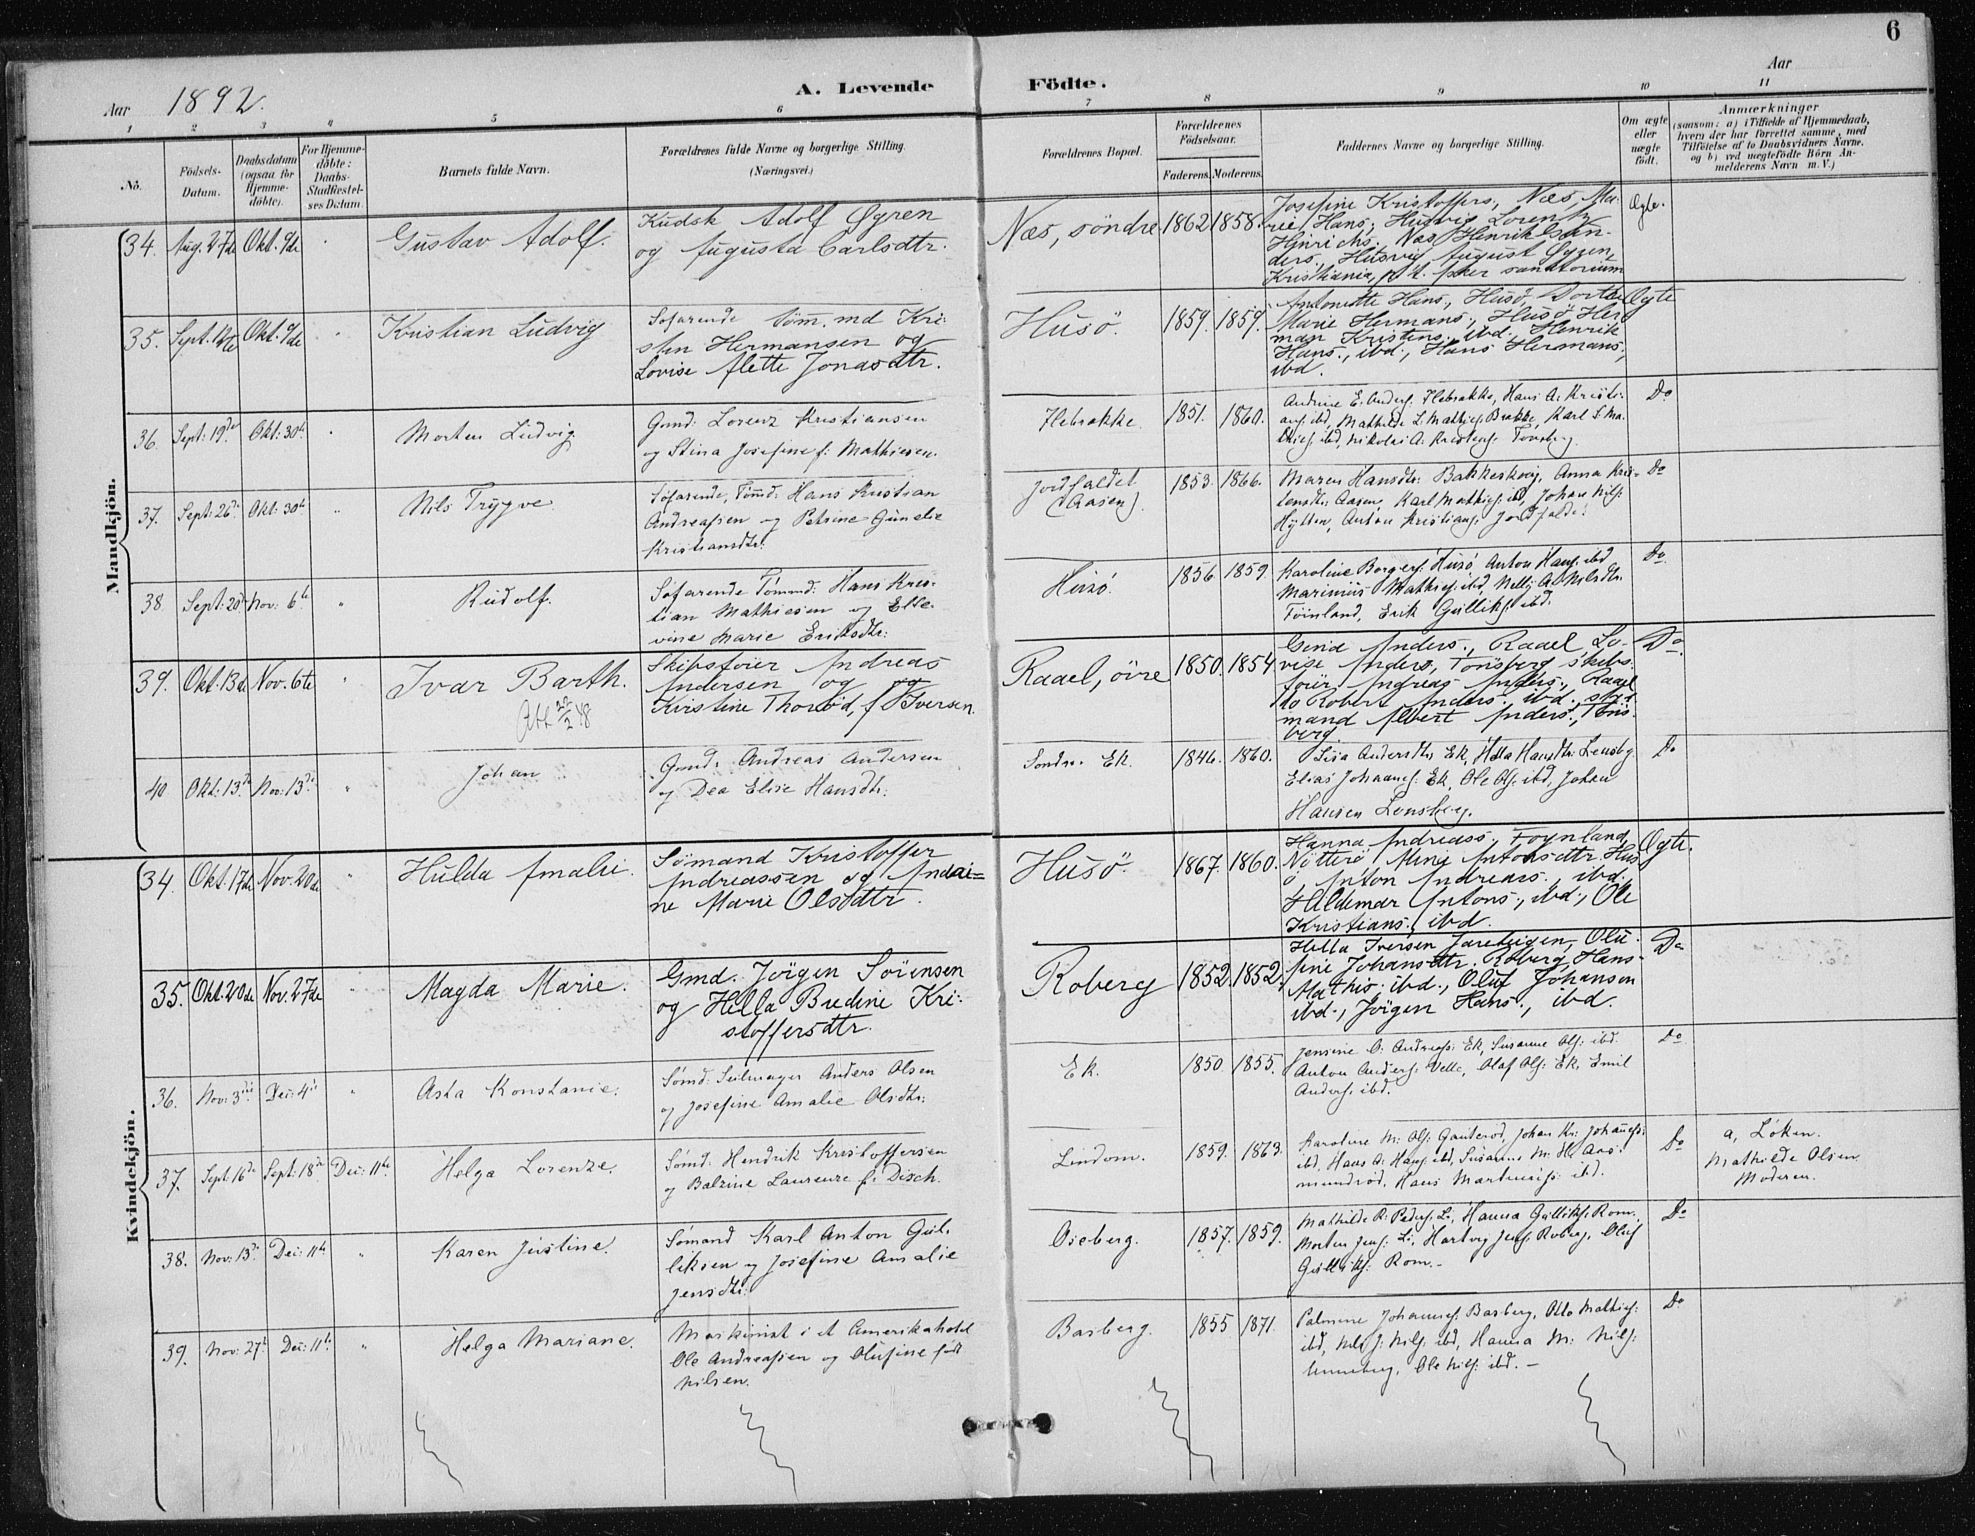 6
Aar 1892.
A. Levende Födte.
Aar
1 2 3 4 5 6 7 8 9 10 11
No.
Födsels-Datum.
Daabsdatum (ogsaa for Hjemme-döbte).
For Hjemme-döbte: Daabs-Stadfæstel-ses Datum.
Barnets fulde Navn.
Forældrenes fulde Navne og borgerlige Stilling. (Næringsvei.)
Forældrenes Bopæl.
Forældrenes Födselsaar.
Faderens. Moderens.
Faddernes Navne og borgerlige Stilling.
Om ægte eller uægte födt.
Anmærkninger
(saasom: a) i Tilfælde af Hjemmedaab,
hvem der har forrettet samme, med
Tilföielse af to Daabsvidners Navne,
og b) ved uægtefödte Börn An-
melderens Navn m. V.)
Mandkjön.
34. Aug. 27de Okt. 9de Gustav Adolf.
Kudsk Adolf Øgren
og Augusta Carlsdtr.
Næs, söndre 1862 1858.
Josefine Kristoffers, Næs, Ma-
rie Hans, Husvig Lorentz
Hinrichs., Næs Henrik
Husvig August Øgren,
Kristiania, sanatorium
Ægte.
35. Sept. 12te Okt. 9de Kristian Ludvig
Söfarende töm. md Kri-
stin Hermansen og
Lovise Alette Jonasdtr.
Husö. 1859. 1859.
Antonette Hans., Husö, Dorthe
Marie Hermans., Husö Her
man Kristens., ibd., Henrik
Hans., ibd., Hans Hermans.,
ibd.
Ægte
36. Sept: 19de Okt: 30te Morten Ludvig
Gmd: Lorenz Kristiansen
og Stina Josefine f: Mathiesen.
Flebrække. 1851. 1860.
Andrine E. Anders: Flebrække, Hans A. Kristi-
ans: ibd, Mathilde L. Mathies: Brække, Karl S. Ma-
thies: ibd, Nikolai A. Tönsberg.
Do
37. Sept: 26de Okt: 30te Nils Trygve
Söfarende, Tömd: Hans Kristian
Andreassen og Petrine Gunelie
Kristiansdtr:
Jordfaldet
(Aasen). 1853. 1866.
Maren Hansdtr: Bakkeskoug, Anna Kris-
tensdtr: Aasen, Karl Mathies: ibd, Johan Nils:
Hytten, Anton Kristians: Jordfaldet
Do
38. Sept: 20de Nov: 6te Rudolf.
Söfarende Tömmd: Hans Kris-
tian Mathiesen og Elle-
vine Marie Eriksdtr:
Husö. 1856. 1859.
Karoline Borgers: Husö Anton Hans: ibd
Marinius Mathies: ibd, Nelly A. Nilsdtr:
Föinland, Erik Gulliks: ibd.
Do.
39. Okt. 13de Nov. 6te Ivar Barth.
Att 20/2 48
Skibsfører Andreas
Andersen og
Kristine f. Iversen.
Raael, övre 1850. 1854
Gina Anders., Raael Lo-
vise Anders., Tönsberg skibs
förer Andreas Anders., Raael
Robert Anders., ibd.,
mand Albert Anders., Töns
berg
Do.
40 Okt: 13de Nov: 13de Johan
Gmd: Andreas Andersen
og Dea Elise Hansdtr:
Sondre Ek. 1846. 1860.
Lisa Andersdtr: Ek, Hella Hansdtr: Lensbg
Elias Johannes: Ek, Ole Ols: ibd, Johan
Hansen Lensberg.
Do
Kvindekjön.
34. Okt. 17de Nov. 20de Hulda Amalie.
Sömand Kristoffer
Andreassen og Andri-
ne Marie Olsdtr.
Husö 1867. 1860.
Hanna Andreass., Föynland,
Nötterö Mina Antonsdtr. Hus
ö, Anton Andreass., ibd.,
Haldemar Antons., ibd., Ole
Kristians., ibd.
Ægte.
35. Okt. 20de Nov. 27de Magda Marie.
Gmd. Jörgen Sörensen
og Hella Budine Kri-
stoffersdtr.
Roberg 1852. 1852.
Hella Iversen Jareteigen, Olu-
fine Johansdtr. Roberg, Hans
Mathis. ibd., Oluf Johansen
ibd., Jörgen Hans., ibd.
Do
36. Nov: 3die Dec: 4de Asta Konstanie.
Sömd: Seilmager Anders Olsen
og Josefine Amalie Olsdtr:
Ek. 1850 1855.
Jensine O. Andreas: Ek, Susanne Ols: ibd.
Anton Anders: Velle, Olaf Ols: Ek, Emil
Anders: ibd.
Do
37. Sept: 16de Sept: 18de Dec: 11te Helga Lorenze.
Sömd: Hendrik Kristoffersen
og Balzine Laurenze f: Disch.
Lindom. 1859. 1863.
Karoline M: Ols: Gauterod, Johan Kr: Johannes:
ibd, Hans A: Hans: ibd, Susanne M: H: Aas-
mundrød, Hans Martinius: ibd.
Do
a, Løken.
Mathilde Olsen
Moderen.
38. Nov: 13de Dec: 11te Karen Justine.
Sömand Karl Anton Gul-
liksen og Josefine Amalie
Jensdtr:
Oseberg. 1857. 1859.
Mathilde R: Peders: Li, Hanna Gulliks: Rom.
Morten Jens: Li, Hartvig Jens: Roberg, Oluf
Gulliks: Rom.-
Do
39. Nov: 27de Dec: 11te Helga Mariane.
Maskinist i et Amerikabaad
Ole Andreassen og Olufine född
Nilsen.
Basberg. 1855 1871.
Palmine Johannes: Basberg, Otto Mathies:
ibd, Nils J: Nils: ibd, Hanna M: Nils:
Unneberg, Ole Nils: ibd.-
Do